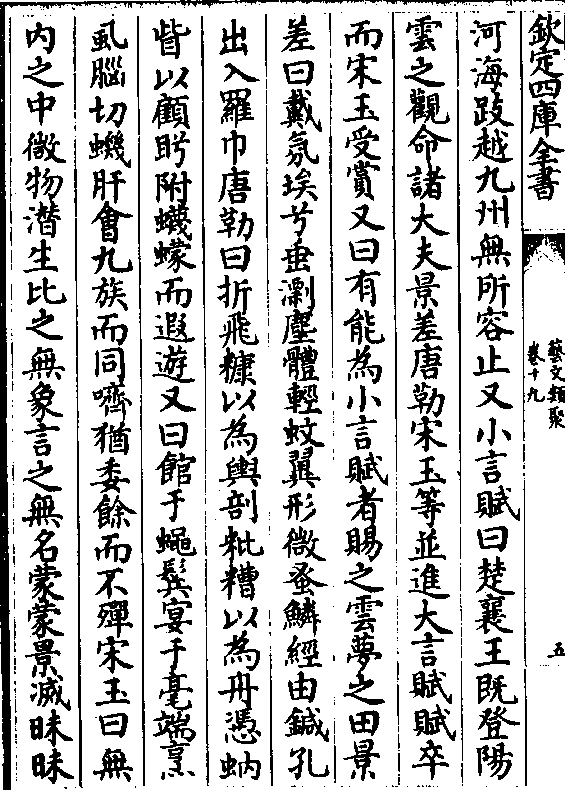 欽定四庫全書
藝文類聚
卷十九
五
河海跂越九州無所容止又小言賦曰楚襄王既登陽
雲之觀命諸大夫景差唐勒宋玉等並進大言賦賦卒
而宋玉受賞又曰有能為小言賦者賜之雲夢之田景
差曰戴氛埃兮垂漂塵體輕蚊翼形微蚤鱗經由鍼孔
出入羅巾唐勒曰折飛糠以為輿剖粃糟以為舟憑蚋
眥以顧盻附蠛蠓而遐遊又曰館于蠅鬓宴于毫端烹
虱腦切蟣肝會九族而同嚌猶委餘而不殫宋玉曰無
内之中微物潛生比之無象言之無名蒙蒙景滅昧昧